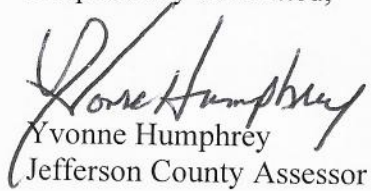 Yvonne Humphrey
Yvonne Humphrey
Jefferson County Assessor